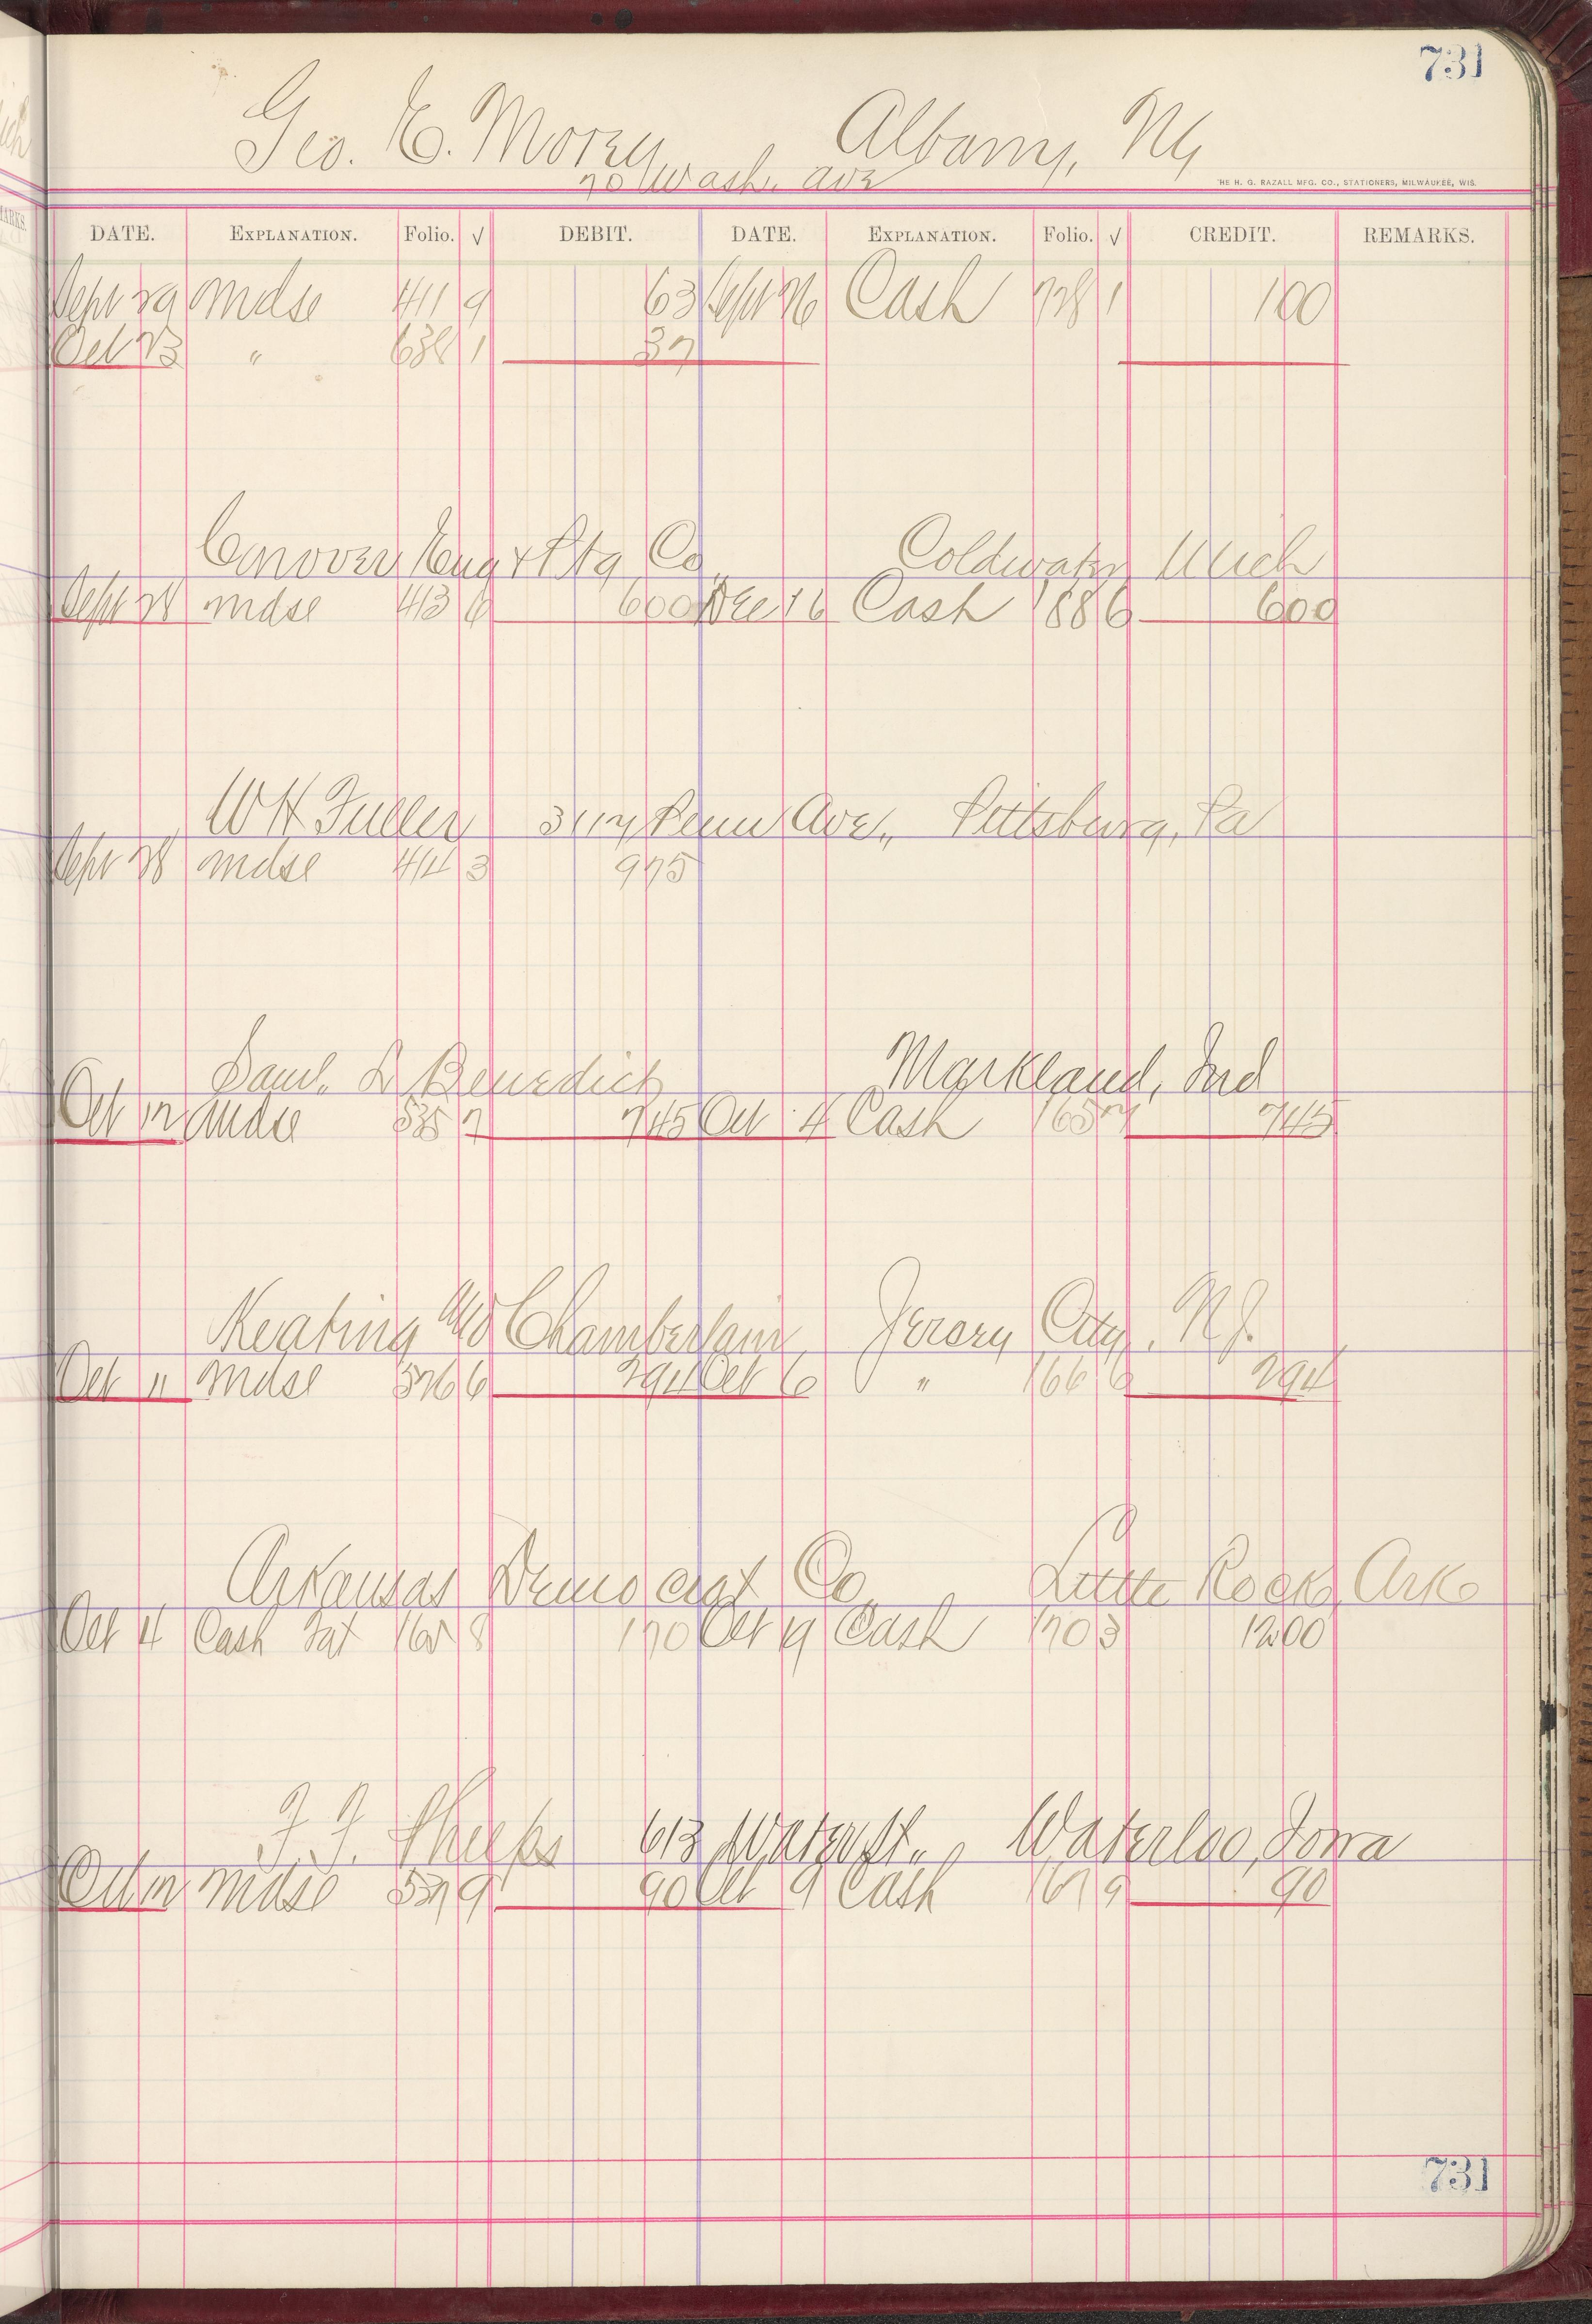 731
Geo. E. Morey Albany, Ny
70 Wash. ave
HE H. G. RAZALL MFG. CO., STATIONERS, MILWAUKEE, WIS.
DATE. EXPLANATION. Folio. √ DEBIT. DATE. EXPLANATION. Folio. √ CREDIT. REMARKS.
Sept 29 mdse 411 9 63 Sept 26 Cash 728 1 100
Oct 23 " 638 1 37
Conover Eng + Ptg Co Coldwater Mich
Sept 28 mdse 413 6 600 Dec 16 Cash 188 6 600
WH Fuller 3117 Penn Ave., Pittsburg, Pa
Sept 28 mdse 414 3 975
Saml. L Benedict Markland, Ind
Oct 12 mdse 535 7 745 Oct 4 Cash 165 7 745
Keating Chamberlain Jersey City, N.J.
Oct 11 mdse 526 6 294 Oct 6 " 166 6 294
Arkansas Democrat Co Little Rock, Ark
Oct 4 Cash 165 8 170 Oct 19 Cash 170 3 1200
F. F. Phelps 613 Water St., Waterloo, Iowa
Oct 12 mdse 537 9 90 Oct 9 Cash 167 9 90
731